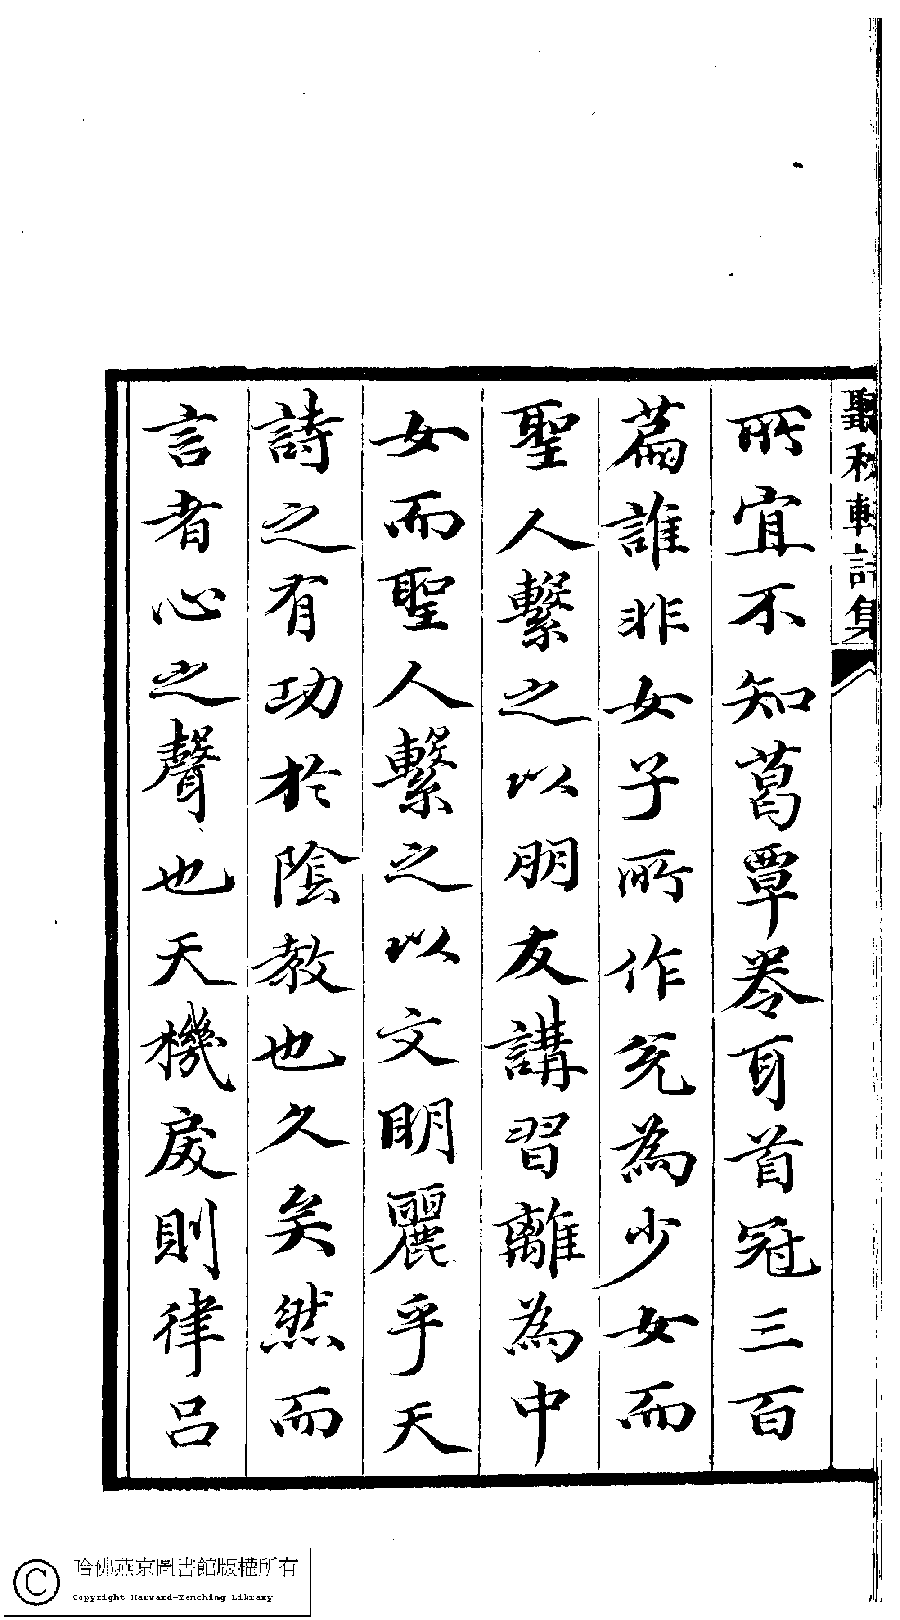 聽秋軒詩集
所宜不知葛覃卷耳首冠三百
篇誰非女子所作兊為少女而
聖人繫之以朋友講習離為中
女而聖人繫之以文明麗乎天
詩之有功於陰教也久矣然而
言者心之聲也天機戾則律呂
哈佛燕京圖書館版權所有
Copyright Harvard-Yenching Library